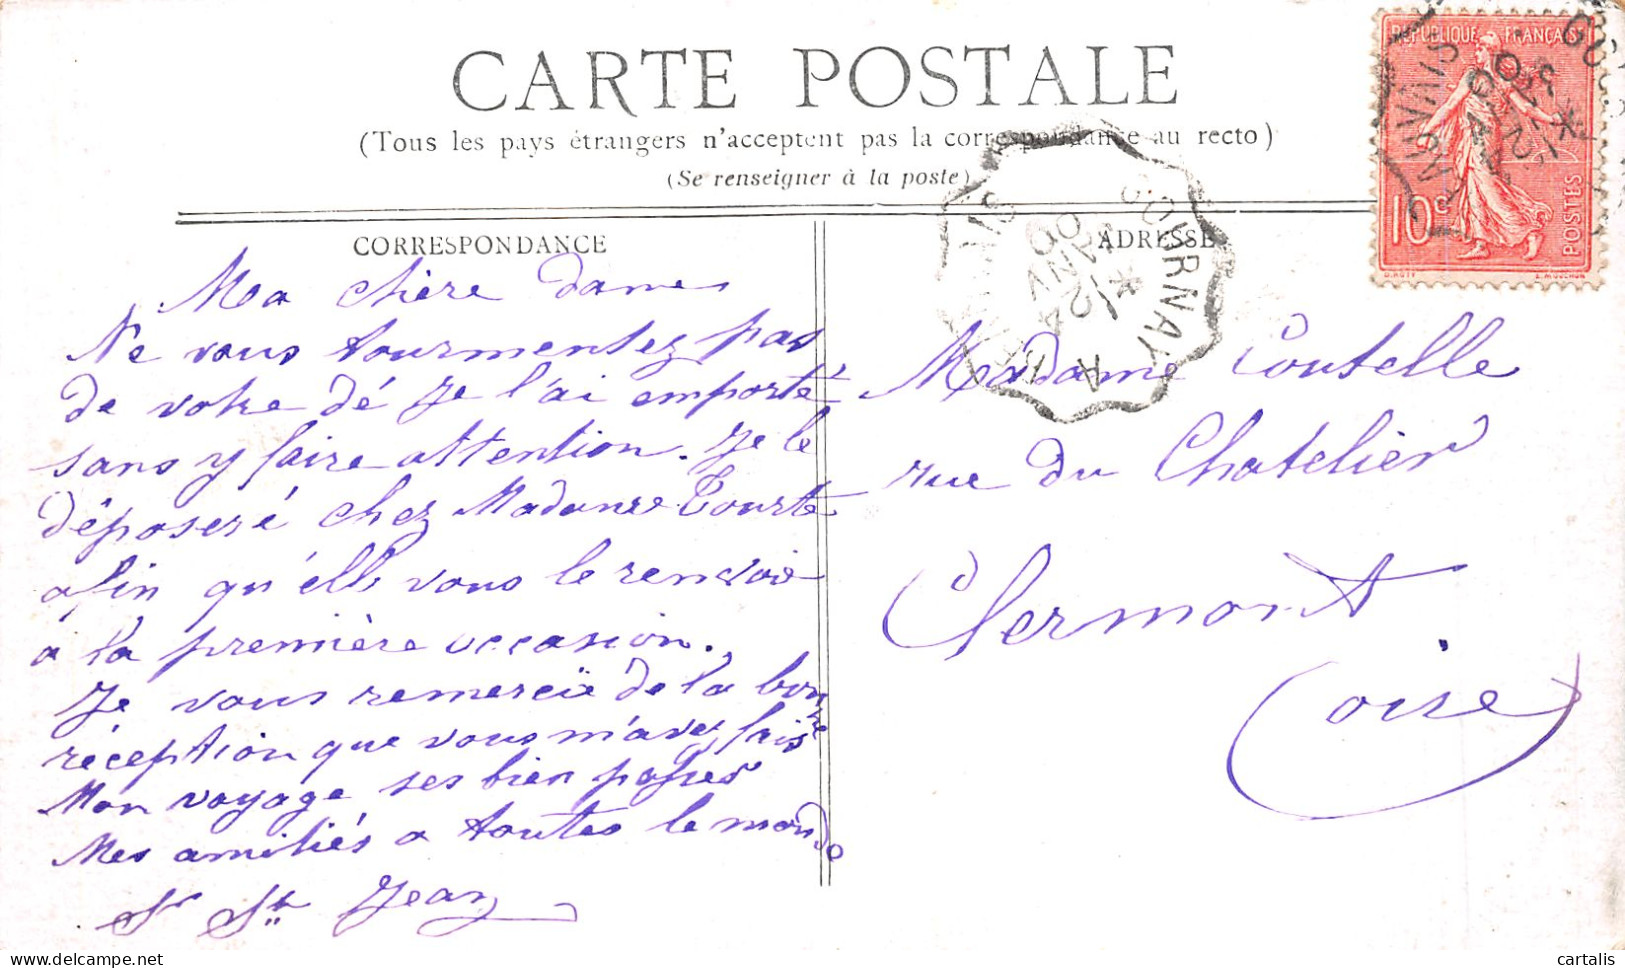 CARTE POSTALE
(Tous les pays étrangers n'acceptent pas la correspondance au recto)
(Se renseigner à la poste)
CORRESPONDANCE
Ma chère dames
Ne vous tourmentez pas
de votre dé Je l'ai emporté
sans y faire attention. Je le
déposeré chez Madame Tourte
afin qu'elle vous le renvoie
a la première occasion.
Je vous remercie de la bonne
réception que vous m'avez fais
Mon voyage ses bien passer
Mes amitiés a toutes le monde
Sr St Jean
ADRESSE
Madame Coutelle
rue du Chatelier
Clermont
Oise
REPUBLIQUE FRANÇAISE
10c
POSTES
O. ROTY
E. MOUCHON
GOURNAY A BEAUVAIS
12
JANV
BEAUVAIS
12
cartalis